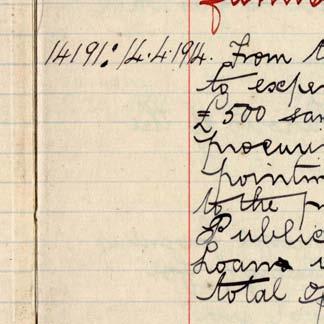 14191: 14.4.194. From t
to expe
£500 san
procuri
pointin
to the p
Public
Loans
total of